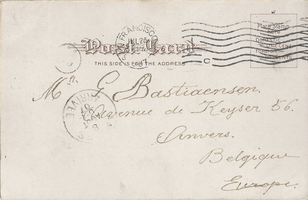 SAN FRANCISCO
JUL 28
Post Card
THIS SIDE IS FOR THE ADDRESS
Mr. G. Bastiaensen.
Avenue de Keyser 56.
Anvers.
Belgique
Europe.